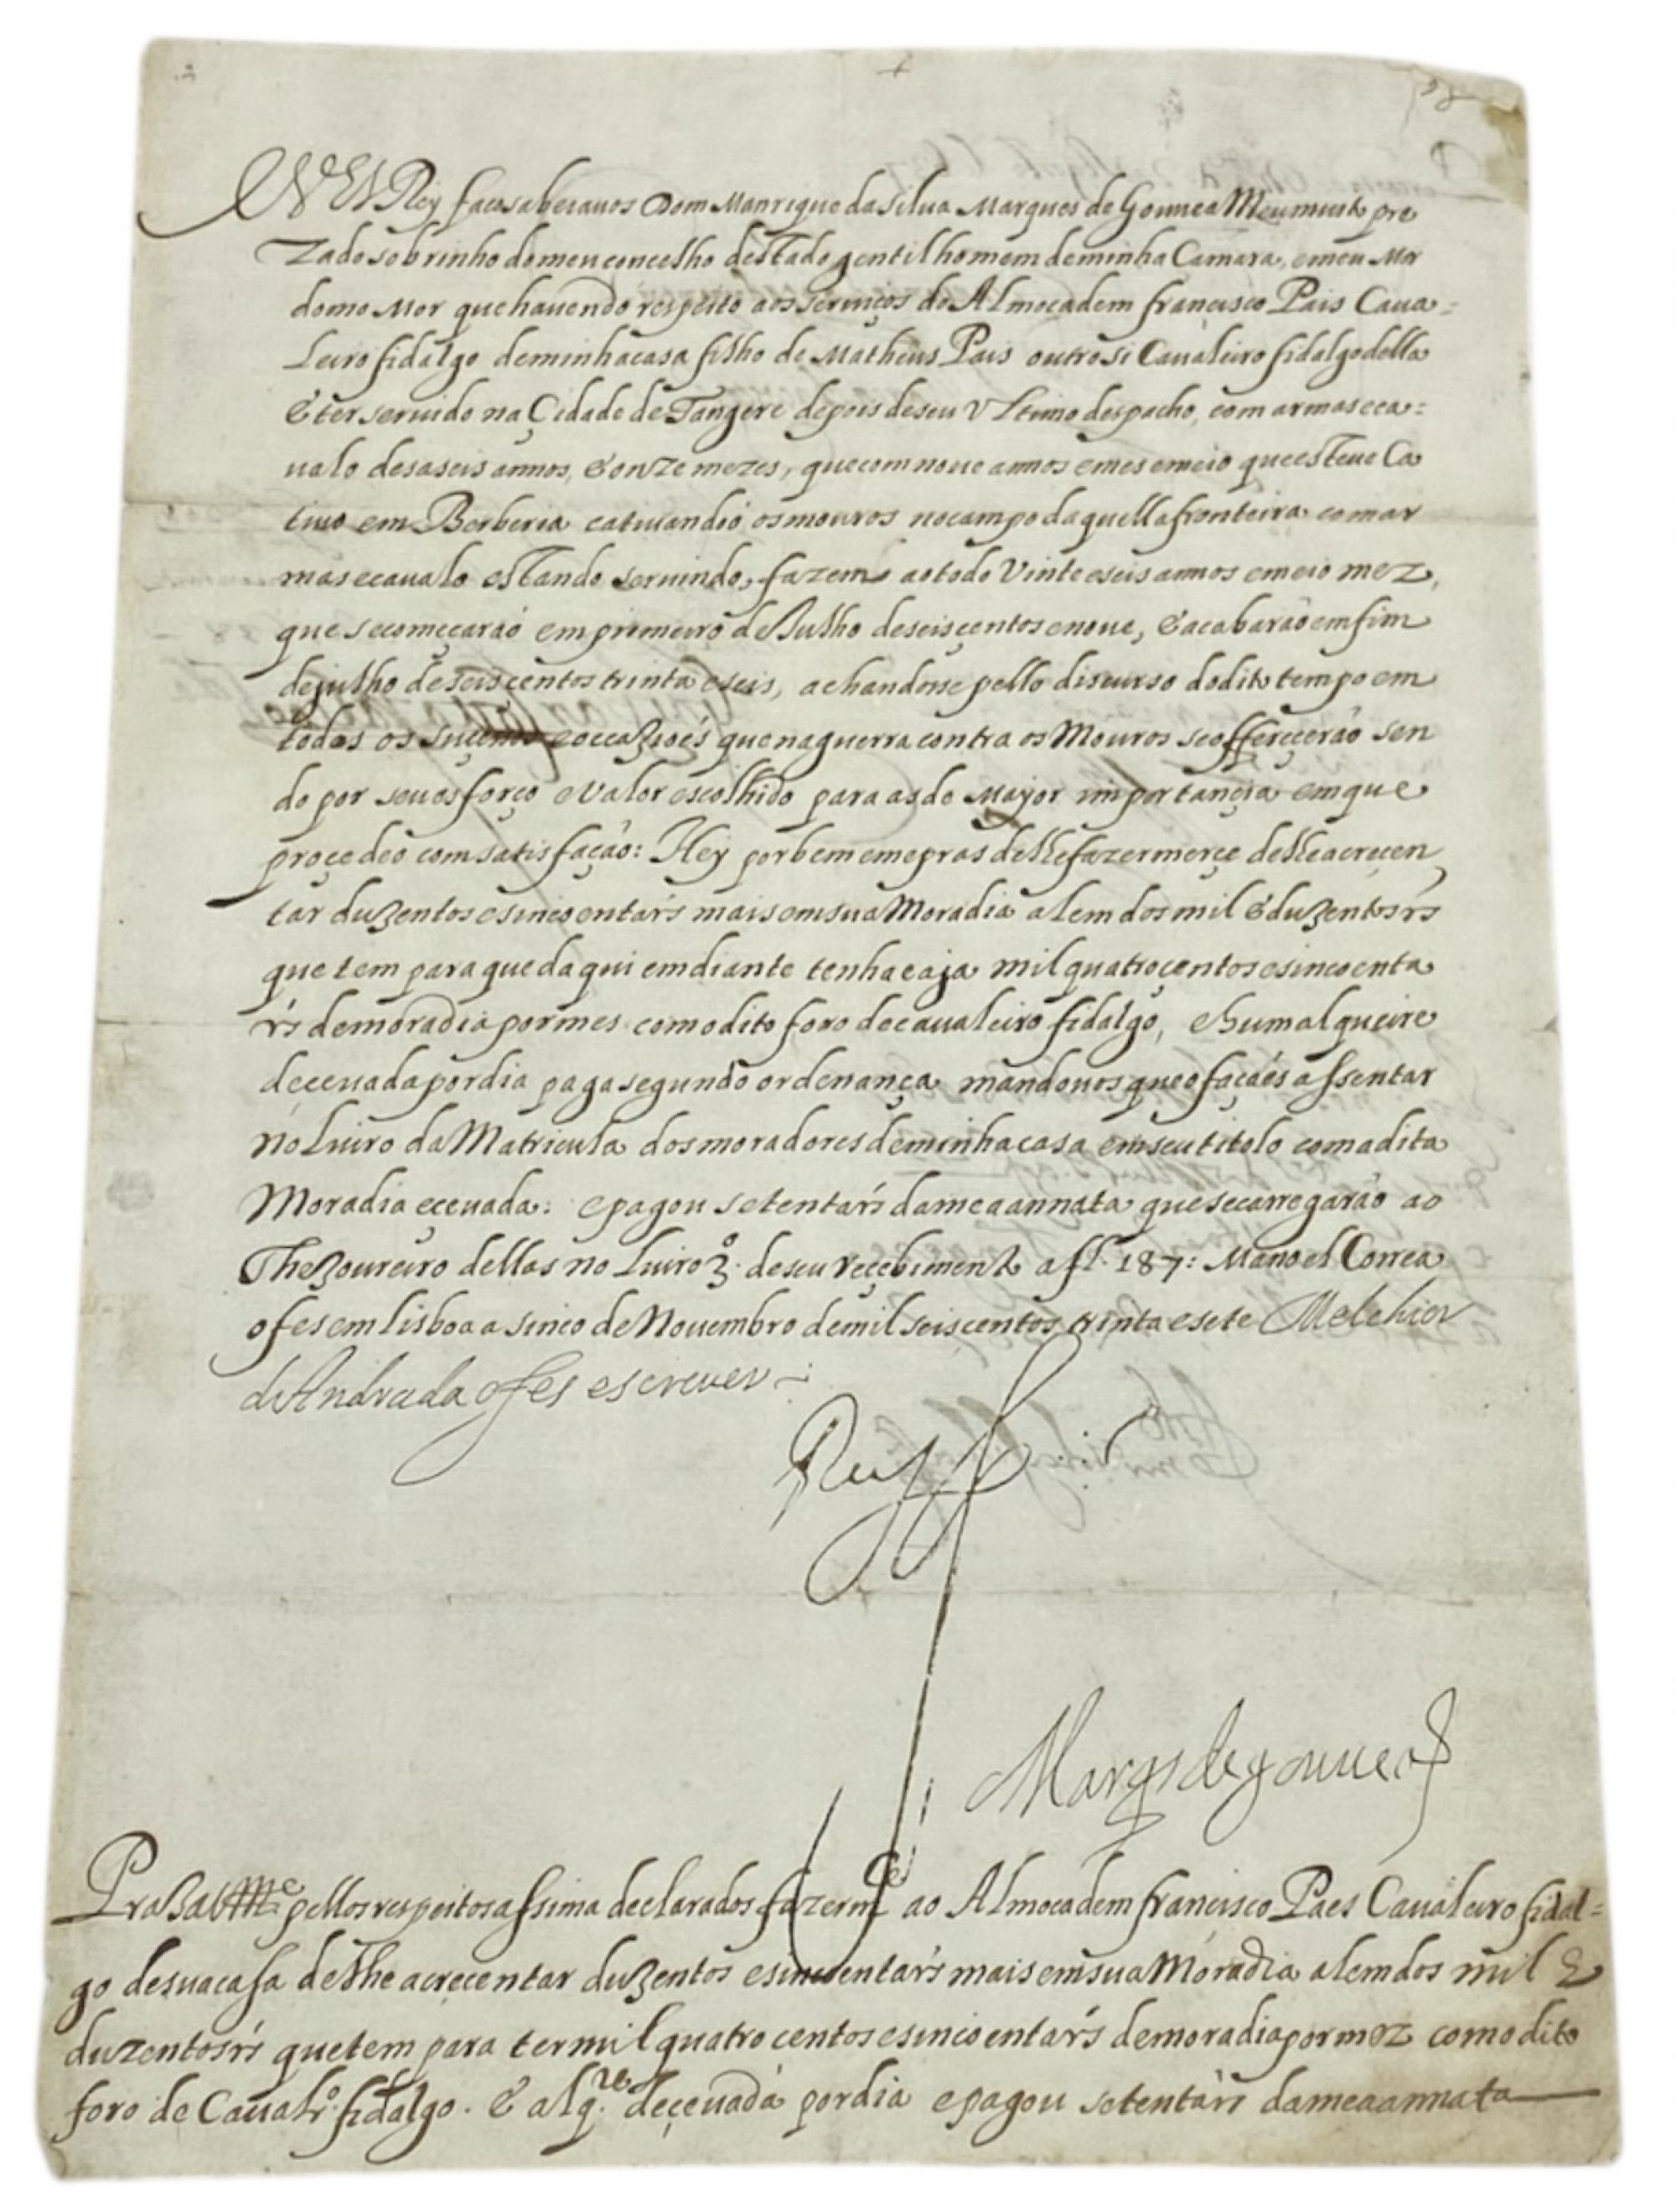 Eu ElRey faço saber a vos Dom Manrique da Silua Marques de Gouuea Meu muito pre
zado sobrinho do meu concelho destado gentil homem de minha Camara, e meu Mor
domo Mor que hauendo respeito aos seruiços do Almocadem francisco Pais Caua=
leiro fidalgo de minha casa filho de Matheus Pais outrosi Caualeiro fidalgo della
E ter seruido na Çidade de Tangere depois de seu Vltimo despacho, com armas e ca=
ualo desaseis annos, E onze mezes, que com noue annos e mes e meio que esteue Ca
tiuo em Berberia catiuandoo os mouros no campo da quella fronteira com ar
mas e caualo estando seruindo, fazem ao todo Vinte e seis annos e meio mez,
que se começarão em primeiro de Julho de seisçentos e noue, E acabarão em fim
de julho de seis centos trinta e seis, achandosse pello discurso do dito tempo em
todos os suçessos e occazioẽs que na guerra contra os Mouros se offereçerão sen
do por seu esforço e valor escolhido para as de Mayor importançia em que
proçedeo com satisfação: Hey por bem e me pras de lhe fazer merçe de lhe acreçen
tar duzentos e sincoenta rs mais em sua Moradia alem dos mil E duzentos rs
que tem para que da qui em diante tenha e aja mil quatroçentos e sincoenta
rs de moradia por mes com o dito foro de caualeiro fidalgo, e hum alqueire
de çeuada por dia paga segundo ordenança mandouos que o façaẽs assentar
no Liuro da Matricula dos moradores de minha casa em seu titolo com a dita
Moradia e çeuada: e pagou setenta rs da mea annata que se carregarão ao
Thezoureiro dellas no Liuro 3º. de seu reçebimento a fl. 187: Manoel Correa
o fes em lisboa a sinco de Nouembro de mil seiscentos trinta e sete Melchior
de Andrada o fes escreuer
Rey
Marqs de gouuea
Praz a V Mde pellos respeitos assima declarados fazer mce ao Almocadem francisco Paes Caualeiro fidal=
go de sua casa de lhe acreçentar duzentos e sincoenta rs mais em sua Moradia alem dos mil E
duzentos rs que tem para ter mil quatro centos e sincoenta rs de moradia por mez com o dito
foro de Caualro. fidalgo. E alqre. de çeuada por dia e pagou setenta rs da mea annata